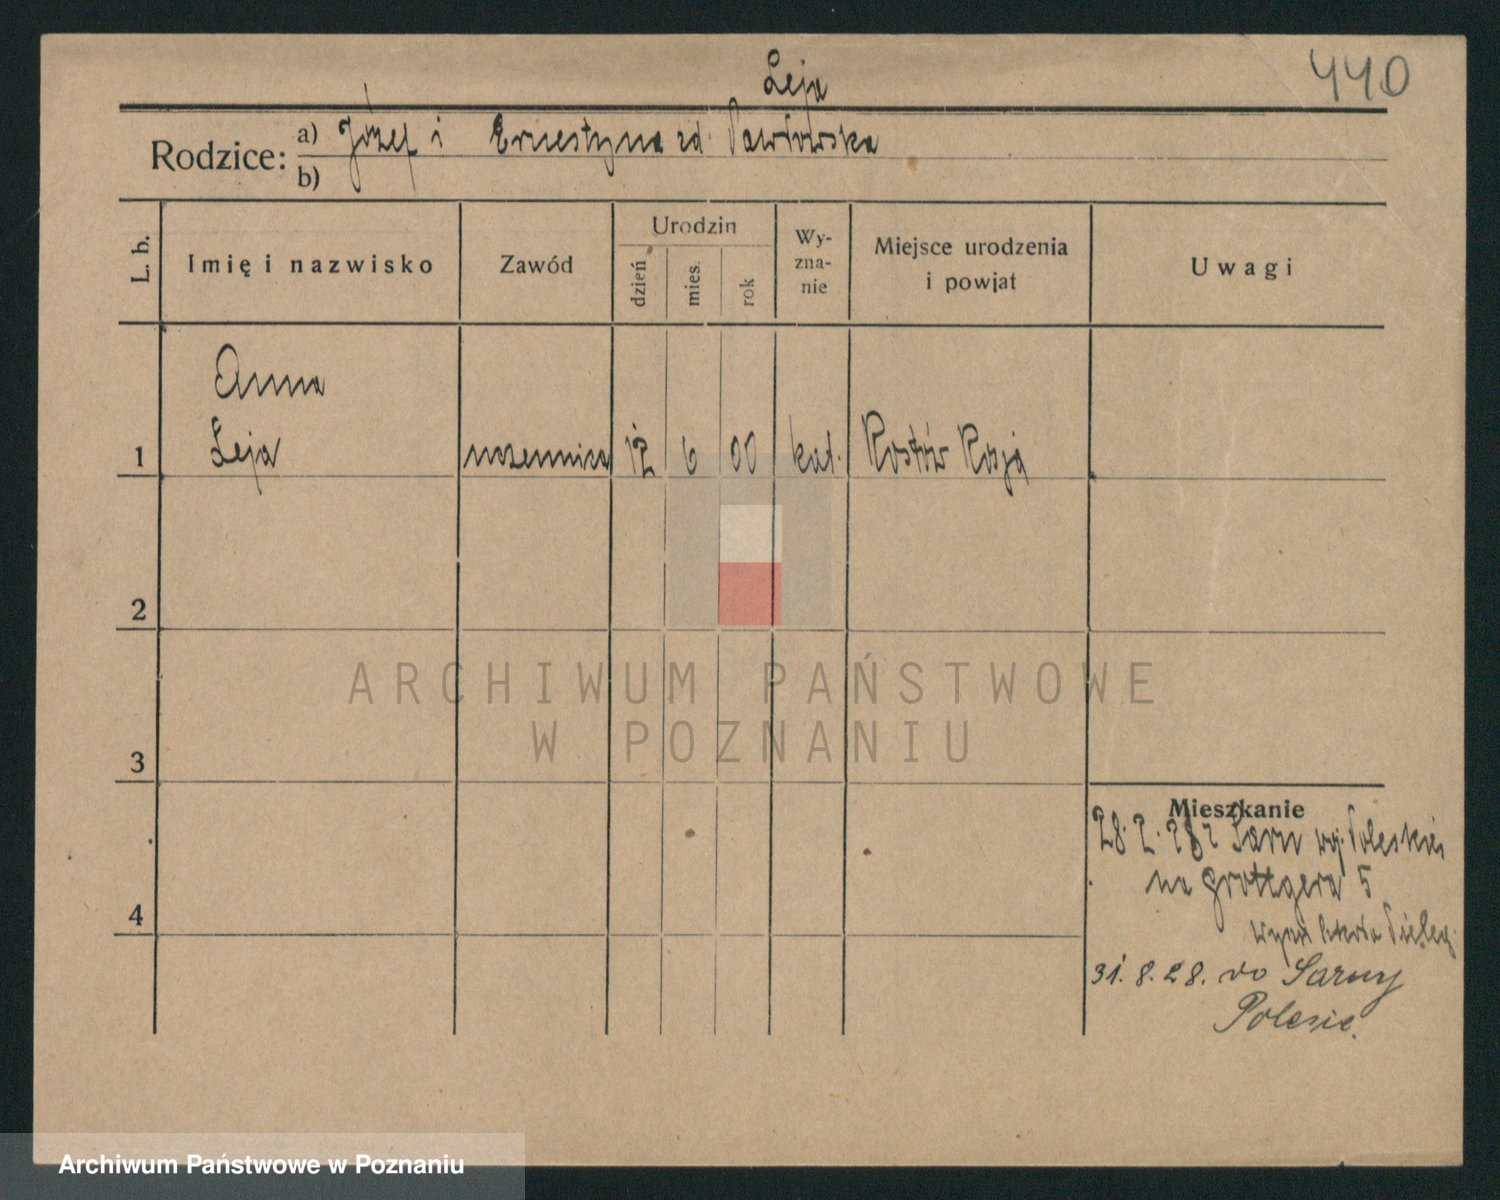 Leja
440
Rodzice:
a) Józef i Ernestyna zd. Pawłowska
b)
L. b.
Imię i nazwisko
Zawód
Urodzin
dzień
mies.
rok
Wy-
zna-
nie
Miejsce urodzenia
i powiat
Uwagi
Anna
1 Leja 12 6 00 kat. Rostów Rosja
2
3
4
Mieszkanie
28. 2. 28 z Sarn woj. Poleskie
na Grottgera 5
31. 8. 28. do Sarny
Polesie.
ARCHIWUM PAŃSTWOWE
W POZNANIU
Archiwum Państwowe w Poznaniu